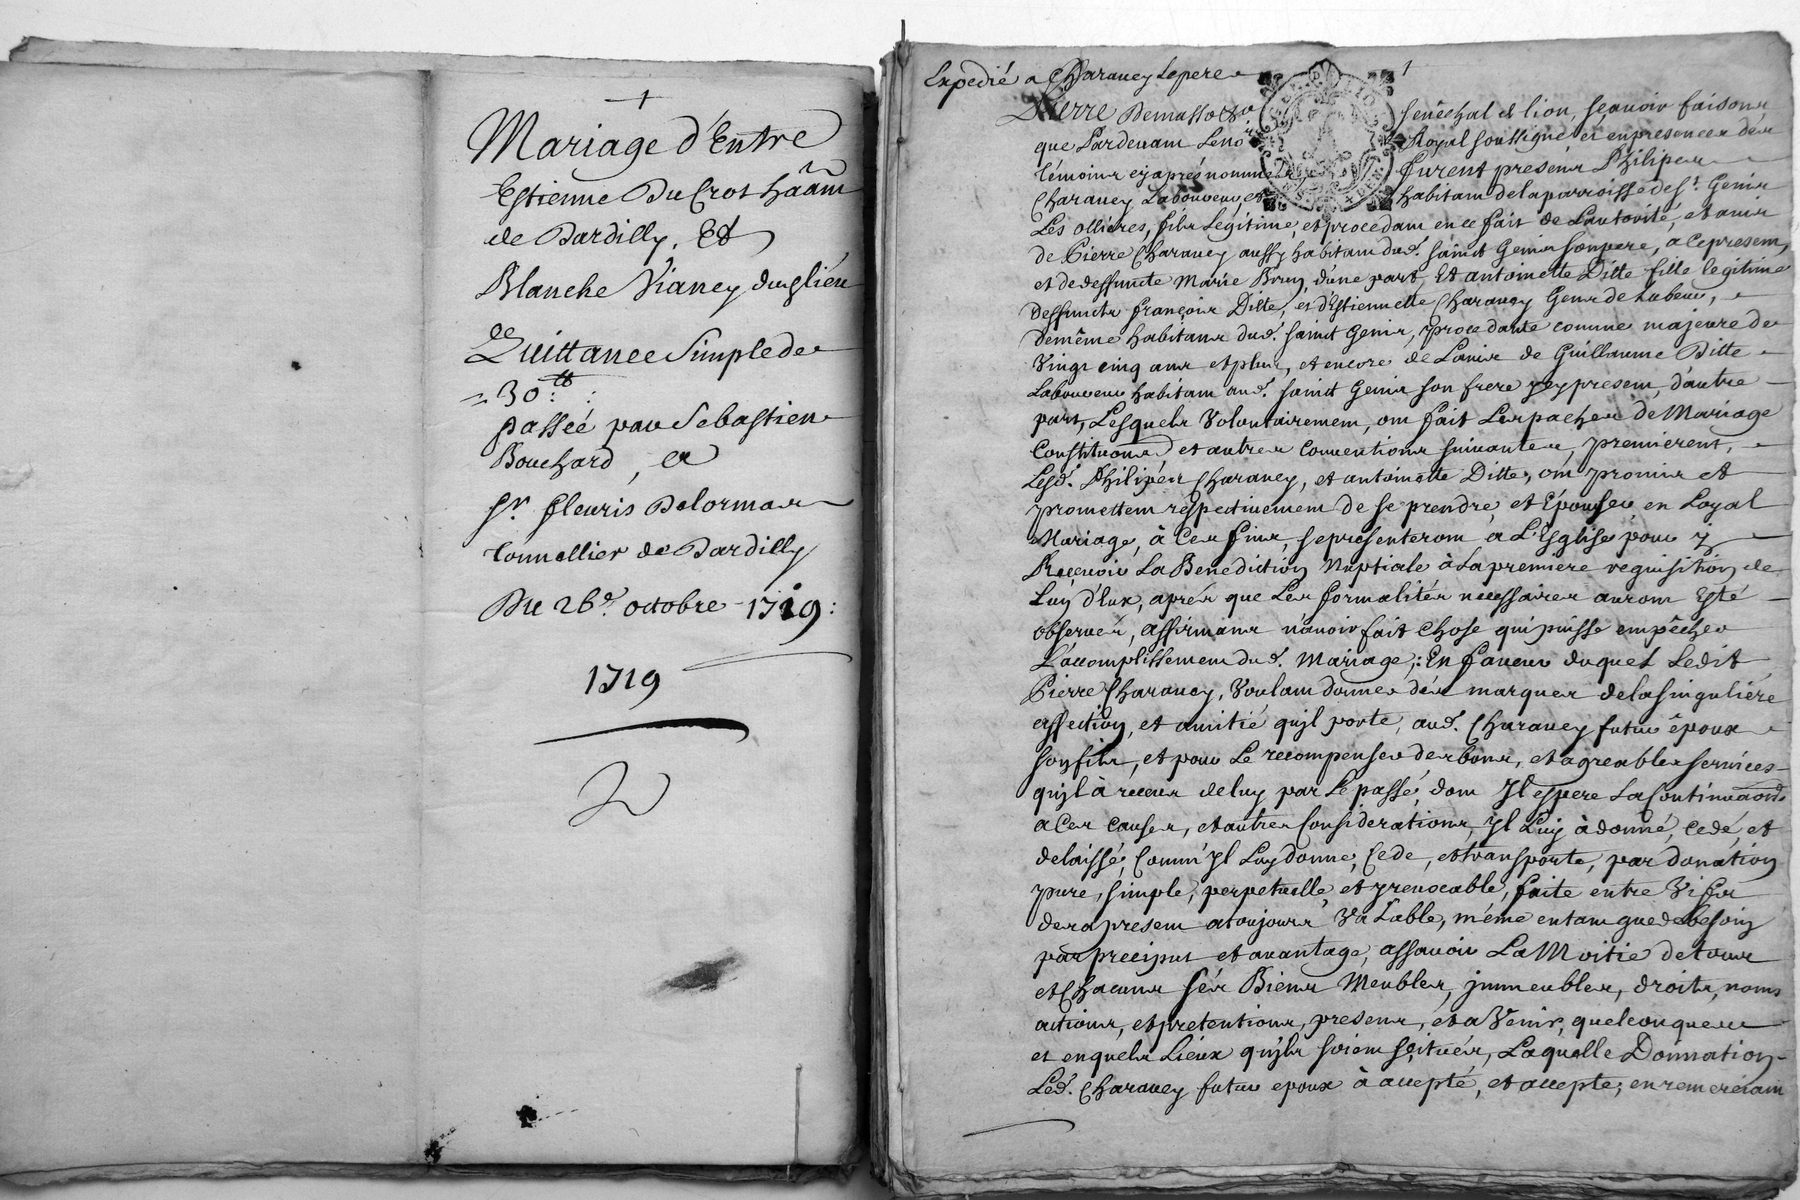 Mariage d'Entre
Estienne Du Crot hâām
de Dardilly, Et
Blanche Vianey duglieu
de
Quittance Simple de
30 tt :
passée par Sebastien
Bouchard, et
Sr. fleuris Delormas
Tonnellier de Dardilly
Du 26e. octobre 1719 :
1719
Expedié a Charavey Le pere
Pierre Demasso &a. senêchal d lion, sçavoir faisons
que Pardevant Le no.re Royal soussigné et en presence des
témoins cy aprés nommés furent presens Philipes
Charavey Laboureur, habitant de la parroisse de St. Genis
Les ollieres, fils Legitime, et procedant en ce fait de L'autorité, et avis
de Pierre Charavey aussy habitant dud. saint Genis son pere, a ce present,
et de deffuncte Marie Brun, d'une part, Et antoinette Ditte fille legitime
deffuncts françois Ditte, et d'Estiennette Charavey Gens de Labeur,
demême habitans dud. saint Genis, procedante comme majeure de
Vingt cinq ans et plus, et encore de L'avis de Guillaume Ditte
Laboureur habitant aud. saint Genis son frere y present, d'autre
part, Lesquels Volontairement, ont fait Les paches de Mariage
Constitutions, et autres Conventions suivantes, premierent,
Lesd. Philipes Charavey, et antoinette Ditte, ont promis et
promettent respectivement de se prendre, et Epouser en Loyal
Mariage, à Ces fins, se presenteront a L'Eglise pour y
Recevoir La Benediction Nuptiale à La premiere requisition de
L'un d'Eux, aprés que Les formalités necessaires auront Esté
observés, affirmans n'avoir fait chose qui puisse empêcher
L'accomplissement du d. Mariage ; En faveur duquel Ledit
Pierre Charavey, Voulant donner dés marques de la singuliére
affection, et amitié qu'jl porte, aud. Charavey futur époux
son fils, et pour Le recompenser des bons, et agreables services
qu'jl à receus de luy par Le passé, dont Jl espere La Continuaon.
a Ces causes, et autres Considerations, Jl Luy à donné, Cedé, et
delaissé, Comm'Jl Luy donne, Cede, et transporte, par donation
pure, simple, perpetuelle, et yrevocable, faite entre Vifs
des a present a toujours Vallable, même en tant que de besoin
par preciput et avantage, assavoir La Moitié de tous
et Chacuns sés Biens Meubles, jmmeubles, droits, noms
actions, et pretentions, presens, et a Venir, quelconques
et en quels Lieux qu'jls soient scitués, Laquelle Donnation
Led. Charavey futur epoux à accepté, et accepte, en remerciant